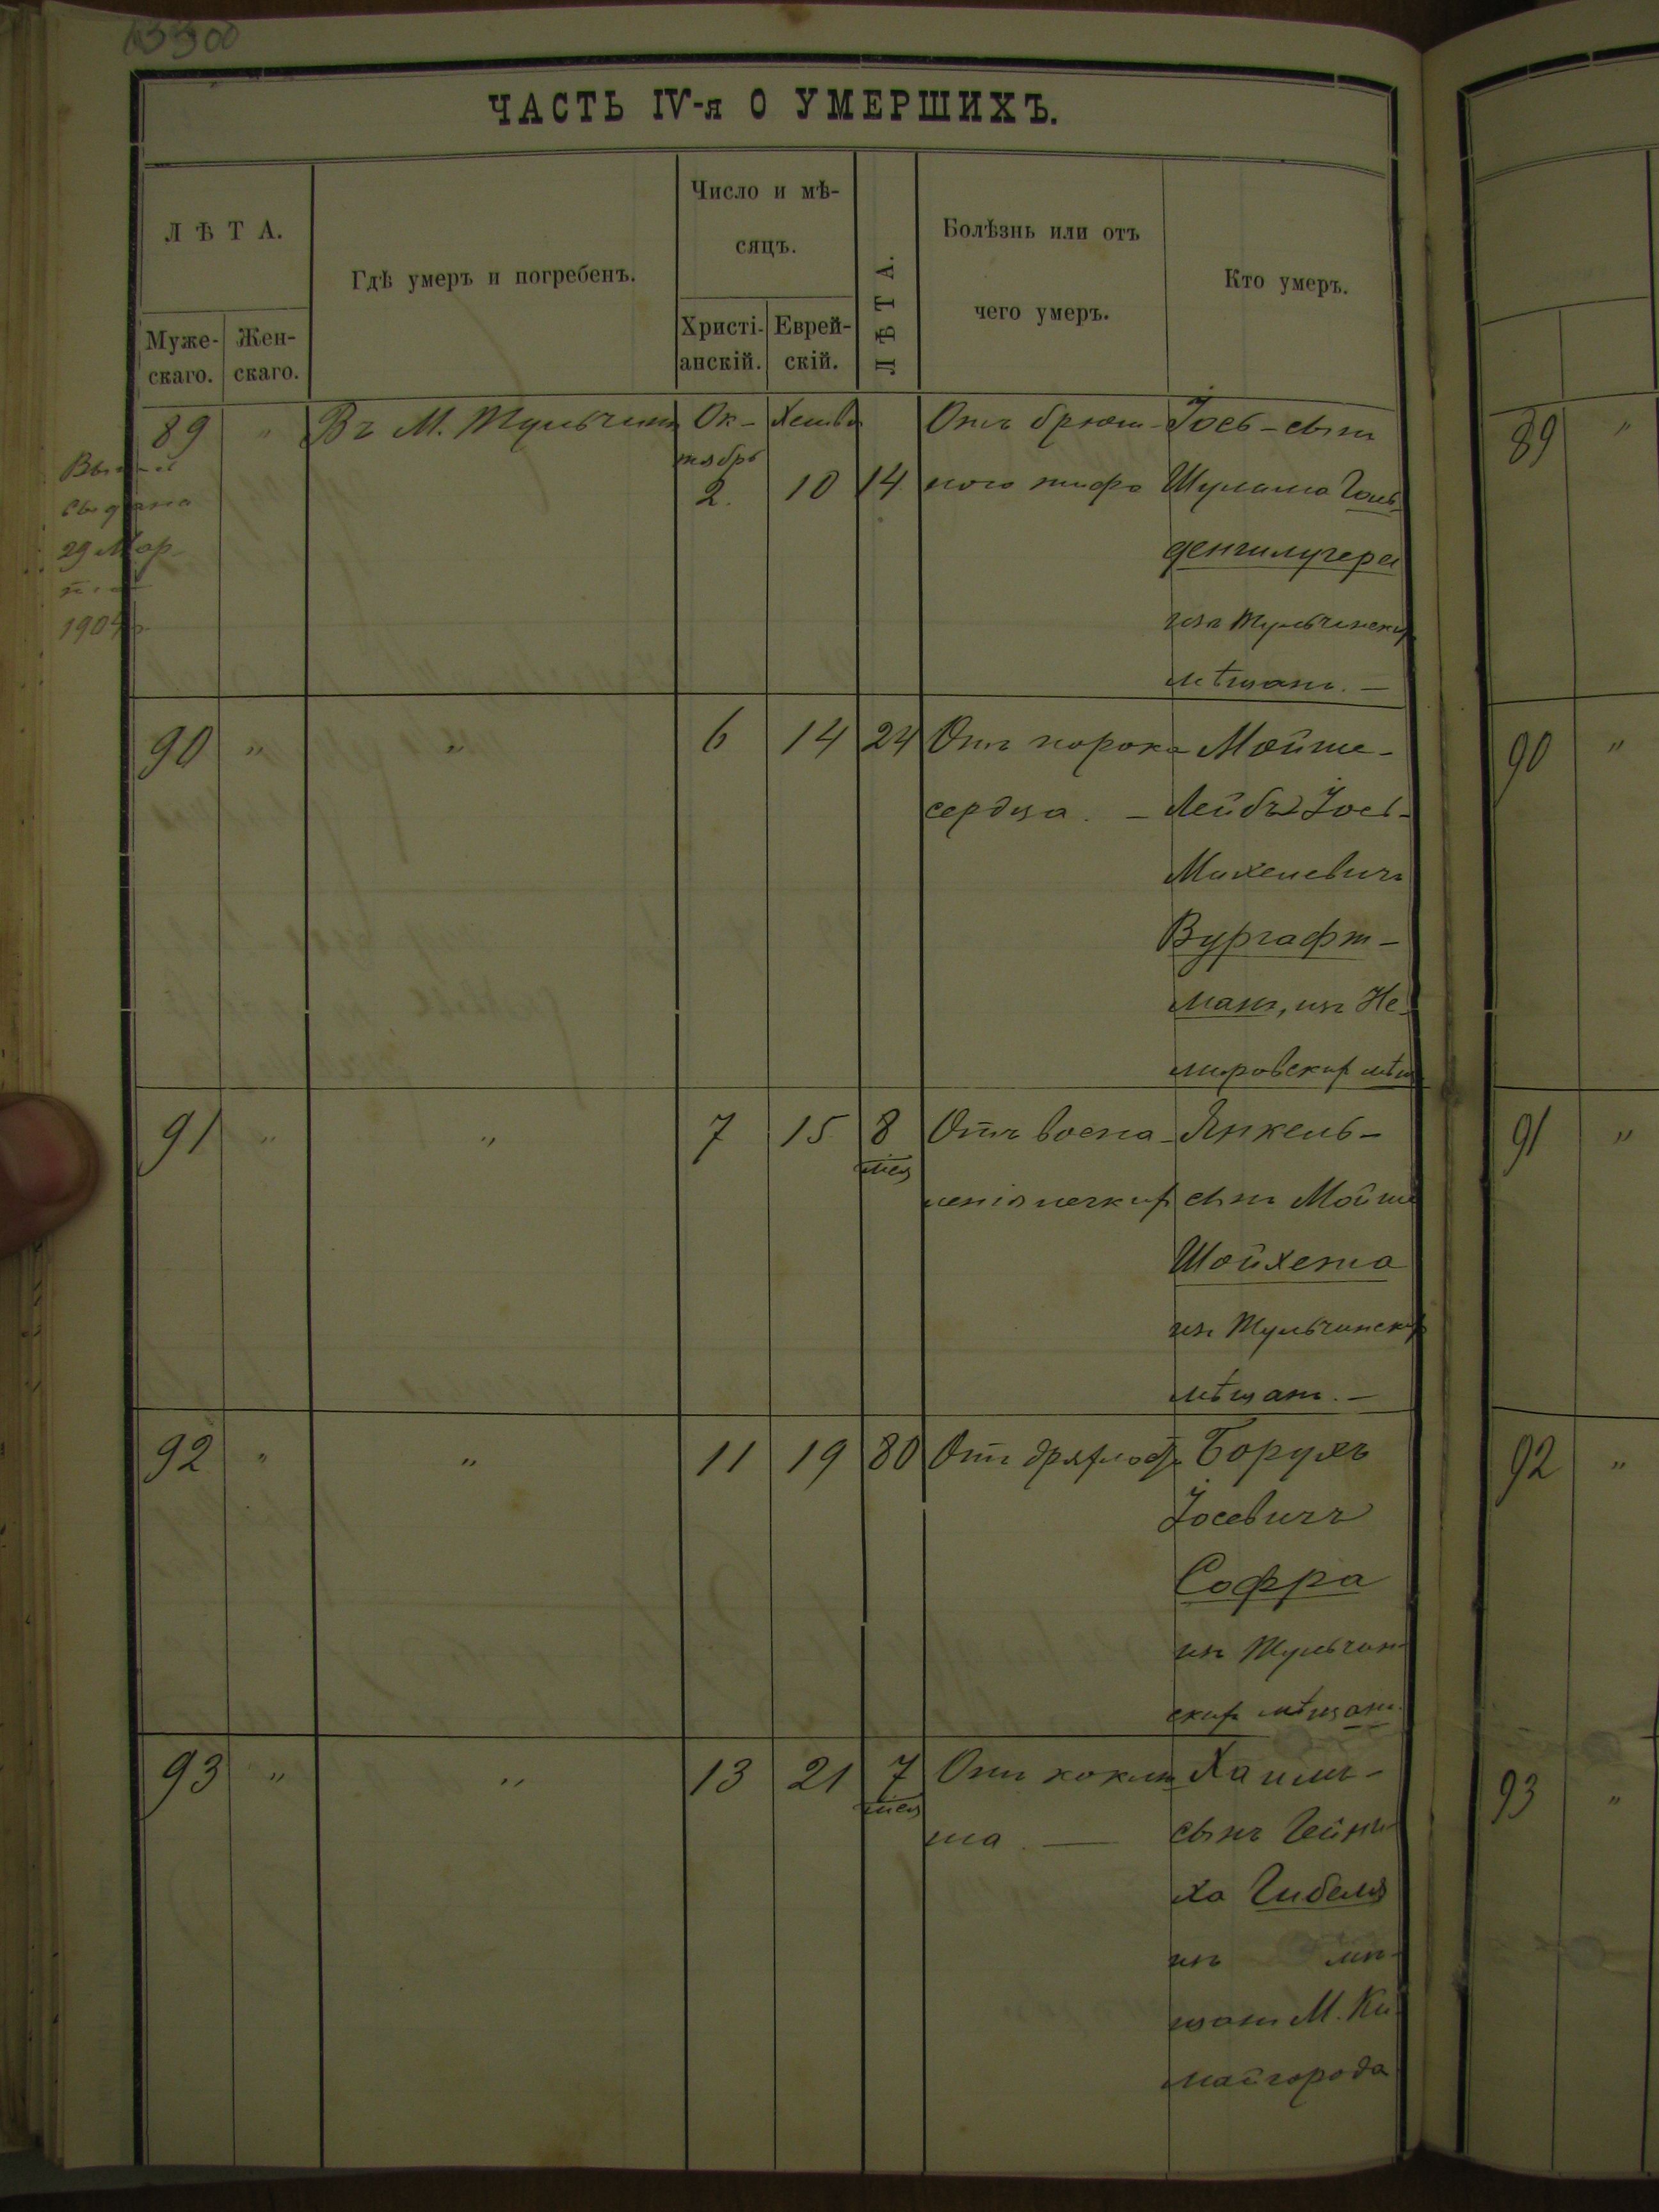 ЧАСТЬ IV-я О УМЕРШИХЪ.
ЛѢТА.
Муже-
скаго.
Жен-
скаго.
Гдѣ умеръ и погребенъ.
Число и мѣ-
сяцъ.
Христі-
анскій.
Еврей-
скій.
ЛѢТА.
Болѣзнь или отъ
чего умеръ.
Кто умеръ.
89 " Въ М. Тульчинѣ Ок-
тябрь
2. 10 14
Отъ брюш-
ного тифа
Іосъ-сынъ
Шулима Голь-
денгилугера
изъ Тульчинских
мѣщанъ. —
29 Мар-
90 " " 6 14 24
Отъ порока
сердца. —
Мойше-
Лейбъ Іось-
Михелевичъ
Вургафт-
манъ, изъ Не-
мировских мѣщ.
91 " " 7 15 8
мѣс
Отъ воспа-
ленія легких
Янкель-
сынъ Мойше
Шойхета
изъ Тульчинских
мѣщанъ. —
92 " " 11 19 80
Отъ дряхлост.
Борухъ
Іосевичъ
Софра
изъ Тульчин-
ских мѣщанъ.
93 " " 13 21 7
мѣс
Отъ коклю
ша. —
Хаимъ-
сынъ Гейни-
ха Гибеля
изъ мѣ-
щанъ М. Ки-
майгорода
89 "
90 "
91 "
92 "
93 "